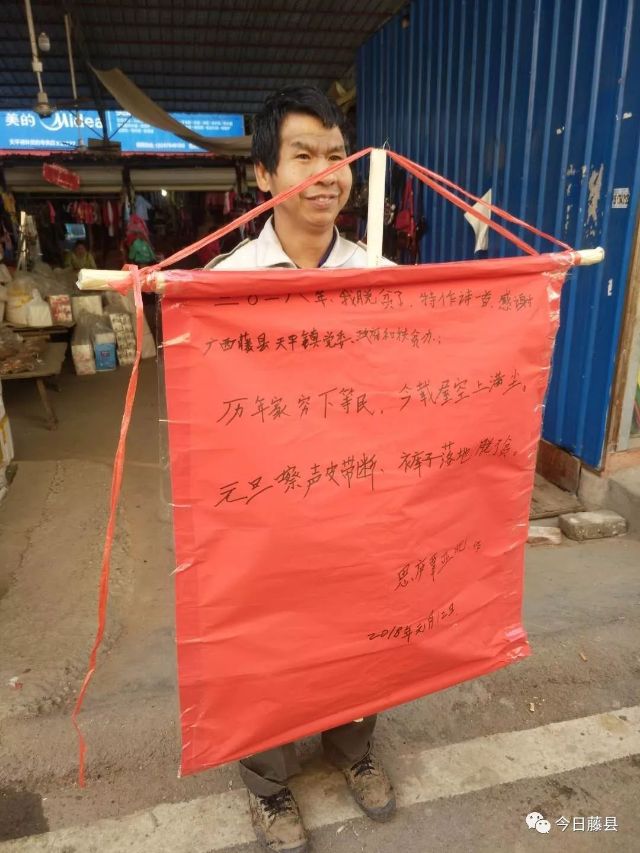 美的 Midea
二〇一八年、我脱贫了，特作诗一首，感谢
广西藤县天平镇党委、政府和扶贫办：
历年家穷下等民，今载屋空上满尘。
元旦擦声皮带断、裤子落地脱了贫。
2018年元月12日
今日藤县